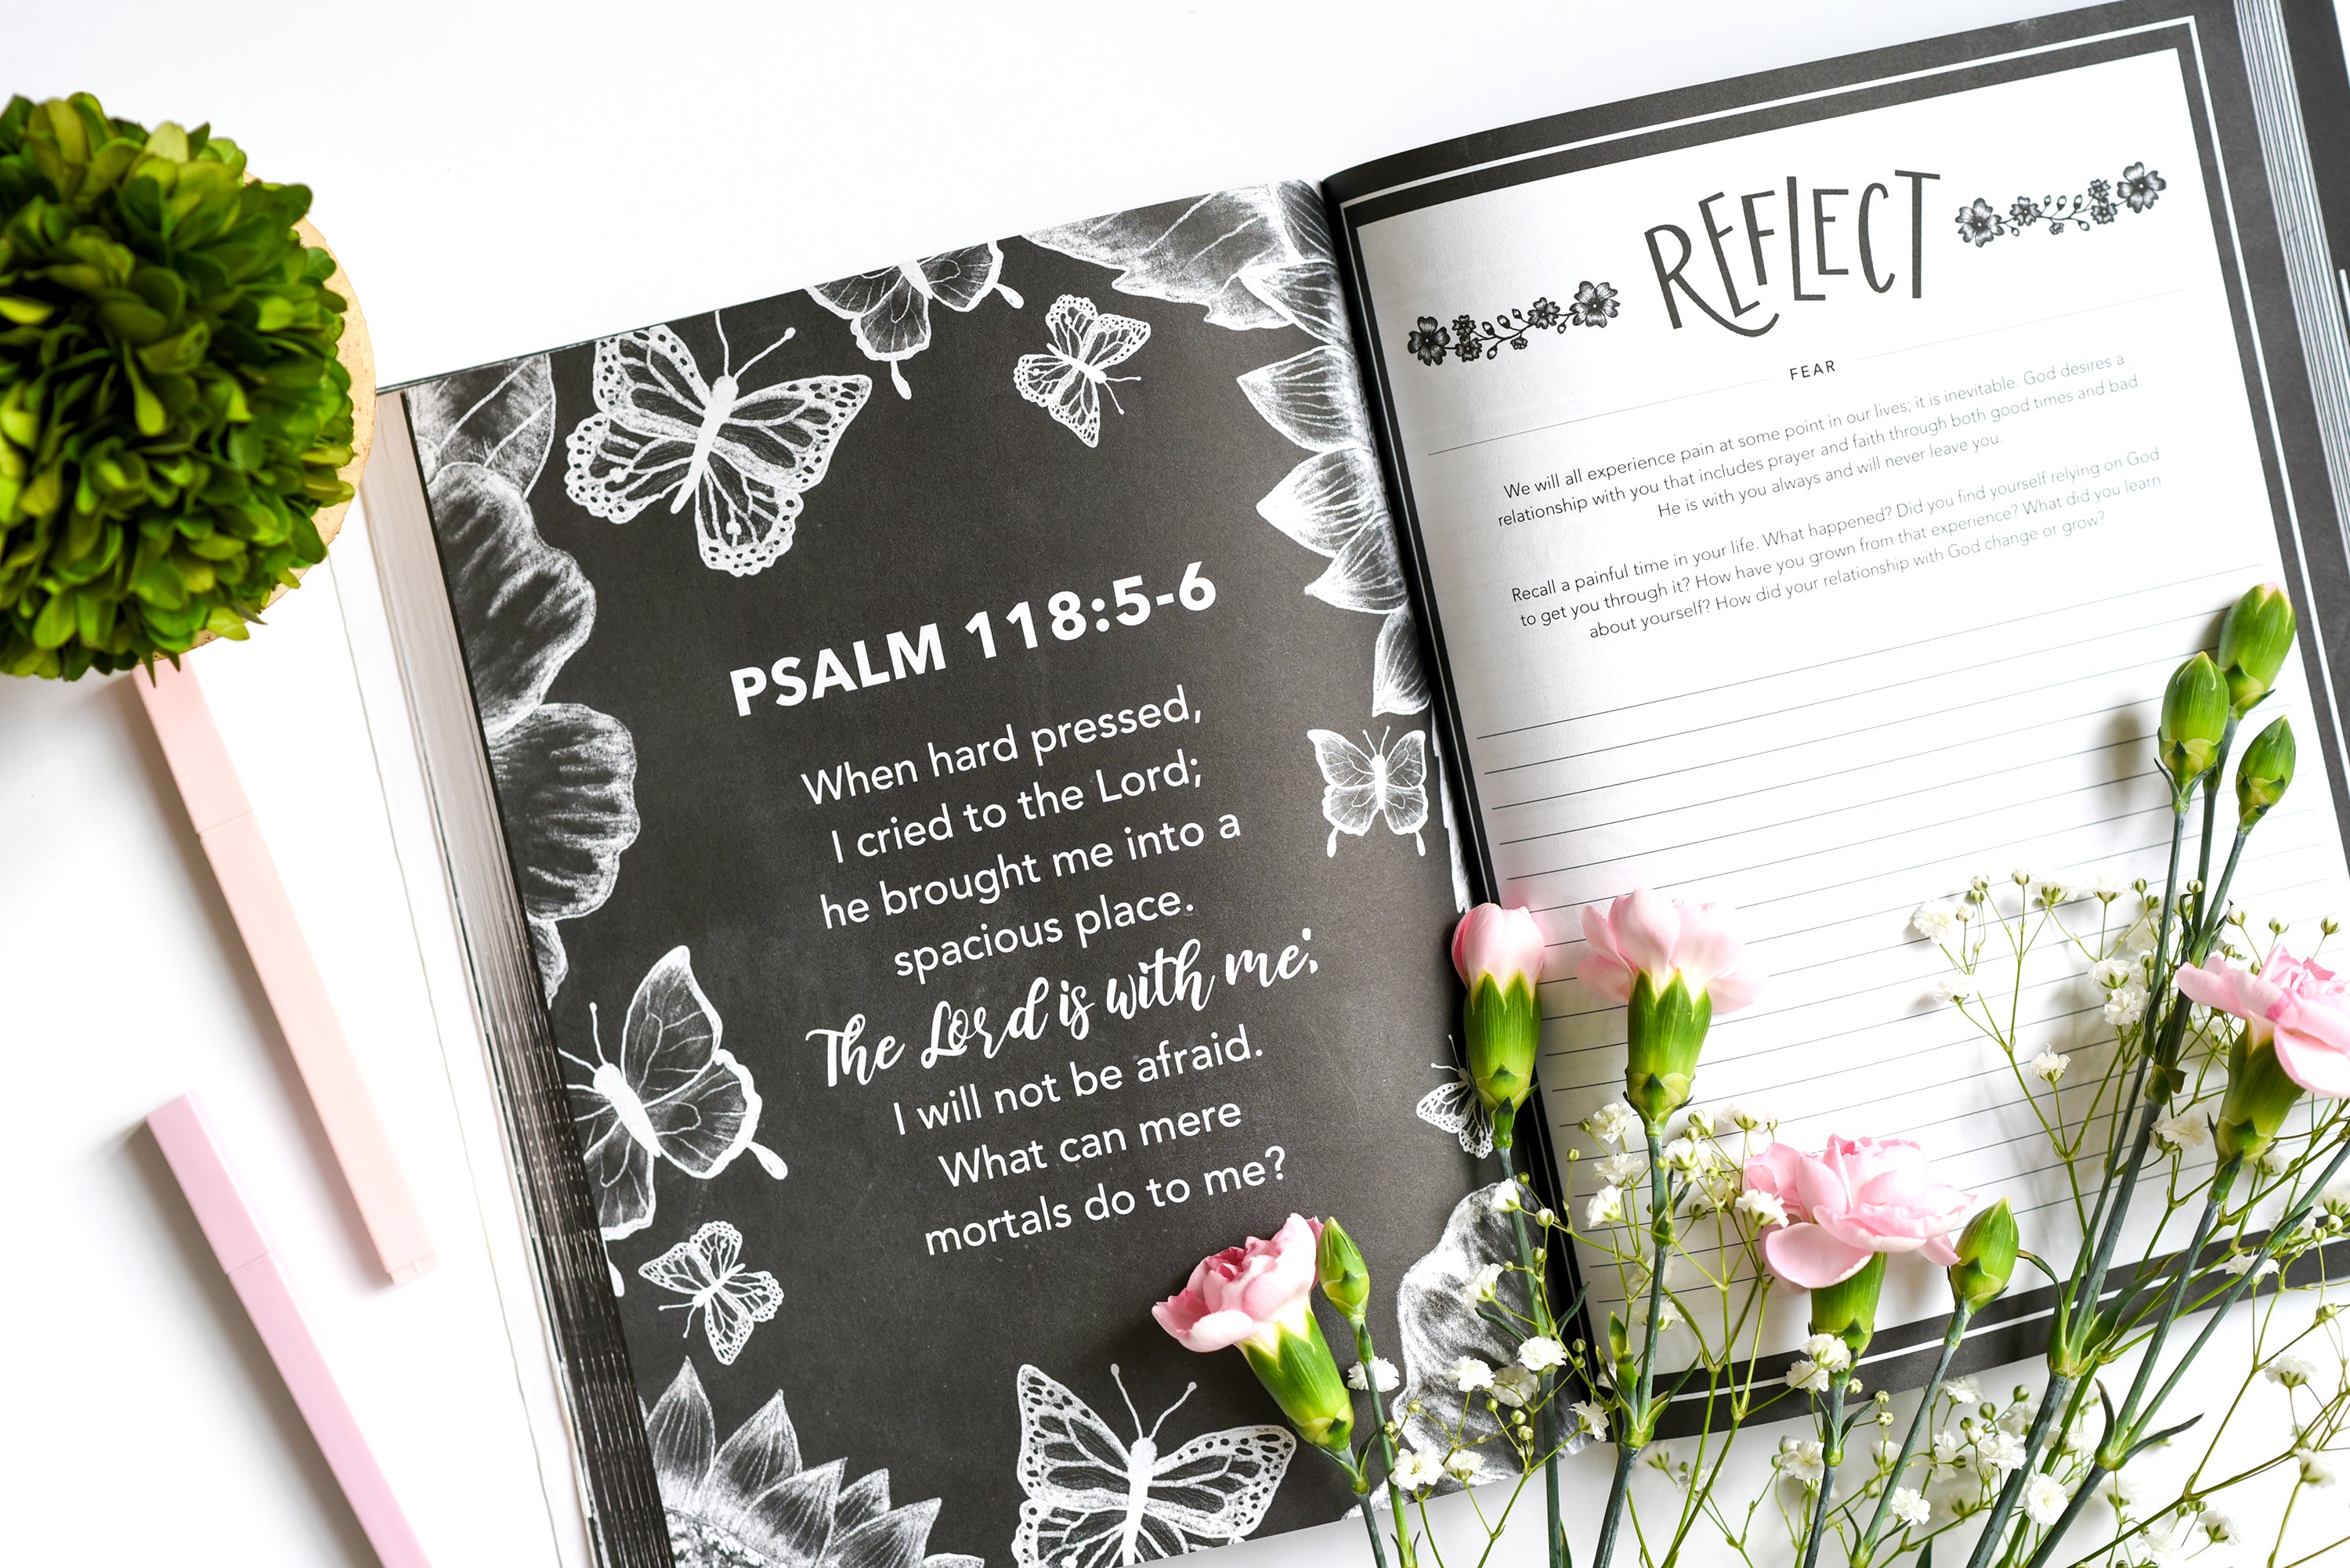 PSALM 118:5-6
When hard pressed,
I cried to the Lord;
he brought me into a
spacious place.
The Lord is with me;
I will not be afraid.
What can mere
mortals do to me?
REFLECT
FEAR
We will all experience pain at some point in our lives; it is inevitable. God desires a
relationship with you that includes prayer and faith through both good times and bad.
He is with you always and will never leave you.
Recall a painful time in your life. What happened? Did you find yourself relying on God
to get you through it? How have you grown from that experience? What did you learn
about yourself? How did your relationship with God change or grow?